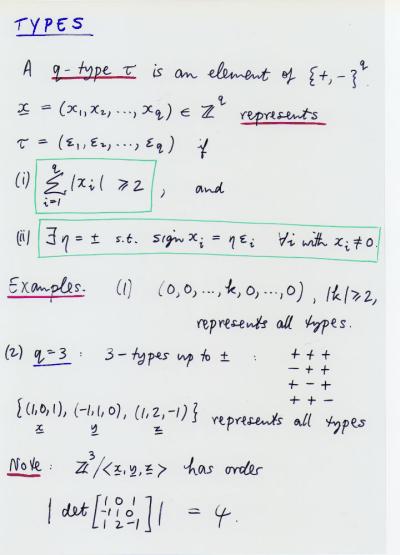 TYPES
A q-type τ is an element of {+,-}^q.
x = (x₁, x₂, ..., x_q) ∈ ℤ^q represents
τ = (ε₁, ε₂, ..., ε_q) if
(i) ∑_{i=1}^{q} |x_i| ⩾ 2, and
(ii) ∃ η = ± s.t. sign x_i = η ε_i ∀i with x_i ≠ 0.
Examples. (1) (0, 0, ..., k, 0, ..., 0), |k| ⩾ 2,
represents all types.
(2) q=3: 3-types up to ±: + + +
- + +
+ - +
+ + -
{(1,0,1), (-1,1,0), (1,2,-1)} represents all types
x y z
Note: ℤ³/<x, y, z> has order
| det [1 0 1
-1 1 0
1 2 -1] | = 4.